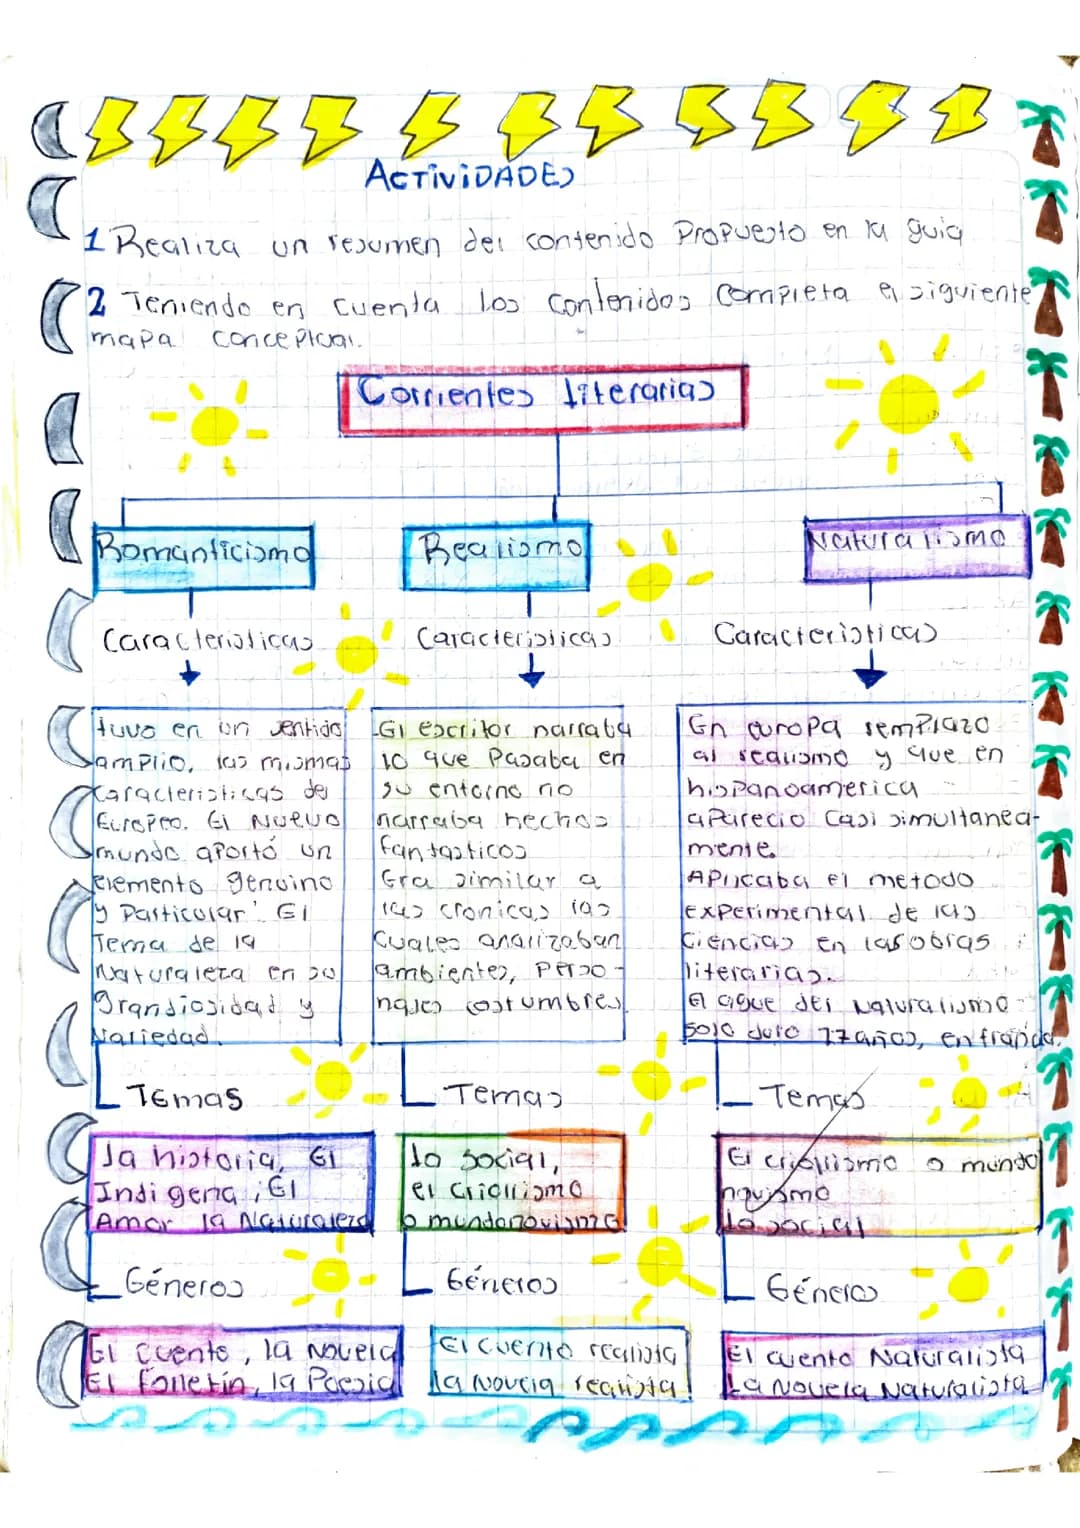 ACTIVIDADES
1 Realiza un resumen del contenido Propuesto en la guia
2 Teniendo en cuenta los contenidos completa el siguiente
mapa conceptual.
Corrientes literarias
Romanticismo
Caracteristicas
tuvo en un sentido
amplio, las mismas
caracteristicas del
Europeo. El Nuevo
mundo aportó un
elemento genuino
y Particular: El
Tema de la
Naturaleza en su
Grandiosidad y
Variedad.
Temas
La historia, El
Indigena, El
Amor la Naturaleza
Géneros
El cuento, la Novela
El folletin, la Poesia
Realismo
Caracteristicas
El escritor narraba
lo que Pasaba en
su entorno no
narraba hechos
fantasticos
Era similar a
las cronicas las
cuales analizaban
ambientes, Perso-
najes costumbres.
Temas
Lo social,
el criollismo
o mundonovismo
Géneros
El cuento realista
La novela realista
Naturalismo
Caracteristicas
En europa remplazo
al realismo y que en
hispanoamerica
aparecio casi simultanea-
mente.
Aplicaba el metodo
experimental de las
Ciencias en las obras
literarias.
El auge del Naturalismo
solo duro 17 años, en francia.
Temas
El criollismo o mundo
novismo
Lo social
Género
El cuento Naturalista
La Novela Naturalista